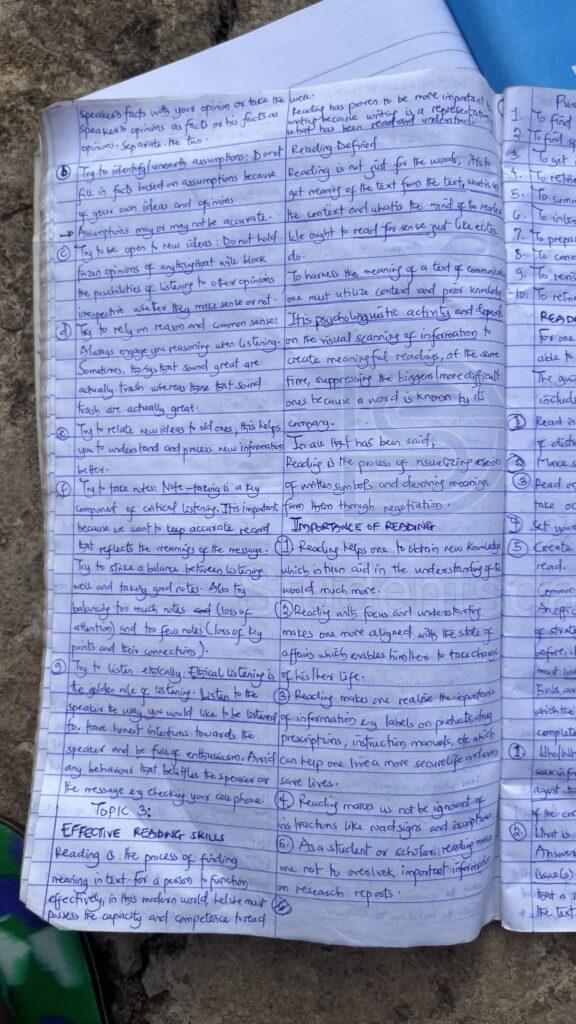 speaker's facts with your opinion or take the
speaker's opinions as facts or his facts as
opinions. Separate the two.
(b) Try to identify/unearth assumptions; Do not
fill in facts based on assumptions because
of your own ideas and opinions.
→ Assumptions may or may not be accurate.
(c) Try to be open to new ideas: Do not hold
opinions of anything that will block
the possibilities of listening to other opinions
irrespective whether they make sense or not.
(d) Try to rely on reason and common sense;
Always engage you reasoning when listening.
Sometimes, things that sound great are
actually trash whereas those that sound
trash are actually great.
(e) Try to relate new ideas to old ones; this helps
you to understand and process new information
better.
(f) Try to take notes: Note-taking is a key
component of critical listening. It is important
because we want to keep accurate record
that reflects the meanings of the message.
Try to strike a balance between listening
well and taking good notes. Also try
balancing too much notes (loss of
attention) and too few notes (loss of key
points and their connections).
(g) Try to listen ethically; Ethical listening is
the golden rule of listening. Listen to the
speaker the way you would like to be listened
to. Have honest intentions towards the
speaker and be full of enthusiasm. Avoid
any behaviour that belittles the speaker or
the message eg checking your cell phone.
TOPIC 3:
EFFECTIVE READING SKILLS
Reading is the process of finding
meaning in text. For a person to function
effectively, in this modern world, he/she must
possess the capacity and competence to read
well.
Reading has proven to be more important
writing because writing is a representation
what has been read and understood.
Reading Defined
Reading is not just for the words, it is to
get meaning of the text from the text, what is in
the context and what is the mind of the reader
We ought to read for sense just like
do.
To harness the meaning of a text of communication
one must utilize context and prior knowledge
It is psycholinguistic activity and depends
on the visual scanning of information to
create meaningful readings, at the same
time, suppressing the bigger/more difficult
ones because a word is known by its
company.
In all that has been said;
Reading is the process of visualizing a series
of written symbols and deriving meanings
from them through negotiation.
IMPORTANCE OF READING
(1) Reading helps one to obtain new knowledge
which in turn aid in the understanding of the
world much more.
(2) Reading with focus and understanding
makes one more aligned with the state of
affairs which enables him/her to take charge
of his/her life.
(3) Reading makes one realise the importance
of information e.g labels on products, drug
prescriptions, instruction manuals, etc which
can help one live a more secure life and even
save lives.
(4) Reading makes us not be ignorant of
instructions like road signs and inscriptions.
5. As a student or scholar; reading makes
one not to overlook important information
on research reports.
(6)
1. To find
2. To find
3. To get
4. To
5. To
6. To
7. To
8. To
9. To
10. To
READ
For one
able to
The
include
(1) Read in
of
(2) Make
(3) Read
take
(4) Set your
(5) Create
read.
of
before,
must
5Ws and
which the
complete
(1) Who/
seek
agent
of the
(2) What is
Answer
issue(s)
that a
the text